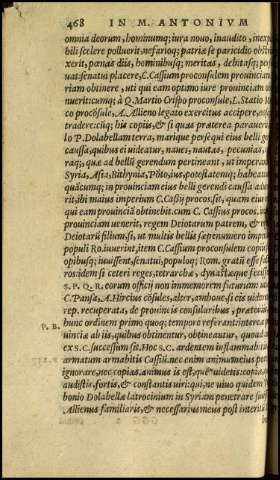 468 IN M. ANTONIVM
omnia deorum, hominumq; iura nouo, inaudito, inexp
bili scelere polluerit, nefarioq; patriæ se paricidio obst
xerit, pœnas diis, hominibusq; meritas, debitasq; per
uat: senatui placere, C. Cassium proconsulem prouinciam
riam obtinere, uti qui eam optimo iure prouinciam o
nuerit: eumq; à Q. Martio Crispo proconsule, L. Statio M
co procōsule, A. Allieno legato exercitus accipere, eosq
tradere: eūq; his copiis, & si quas præterea parauerit
lo P. Dolabellam terra, mariq́ue persequi eius belli ger
caussa, quibus ei uideatur, naues, nautas, pecuniam,
raq;, quæ ad bellū gerendum pertineant, ut imperan
Syria, Asia, Bithynia, Pōto, ius, potestatemq; habeat
quācumq; in prouinciam eius belli gerendi caussa adue
rit, ibi maius imperium C. Cassij procos. sit, quam eius
qui eam prouinciā obtinebit. cum C. Cassius procos.
prouinciam uenerit. regem Deiotarum patrem, & r
Deiotarū filium, si, ut multis bellis sæpenumero imper
populi Ro. iuuerint, item C. Cassium proconsulem copiis
opibusq; iuuissent, senatui, populoq; Rom. gratū esse fac
rosidem si ceteri reges, tetrarchæ, dynastæque fecis
S. P. Q. R. eorum officij non immemorem futurum
C. Pansa, A. Hircius cōsules, alter, ambóue, si eis uidere
rep. recuperata, de prouinciis consularibus, prætor
hunc ordinem primo quoq; tempore referant: interea pro
P. B. uinciæ ab iis, quibus obtinentur, obtineātur, quoad
ex S.C. successum sit. Hoc S.C. ardentem inflammabit
armatum armabitis Cassiū. nec enim animum eius pot
ignorare, nec copias. animus is est, quē uidetis: copiæ,
audistis. fortis, & constantis uiri: qui, ne uiuo quidem
bonio Dolabellæ latrocinium in Syriam penetrare siui
Allienus familiaris, & necessarius meus post interit